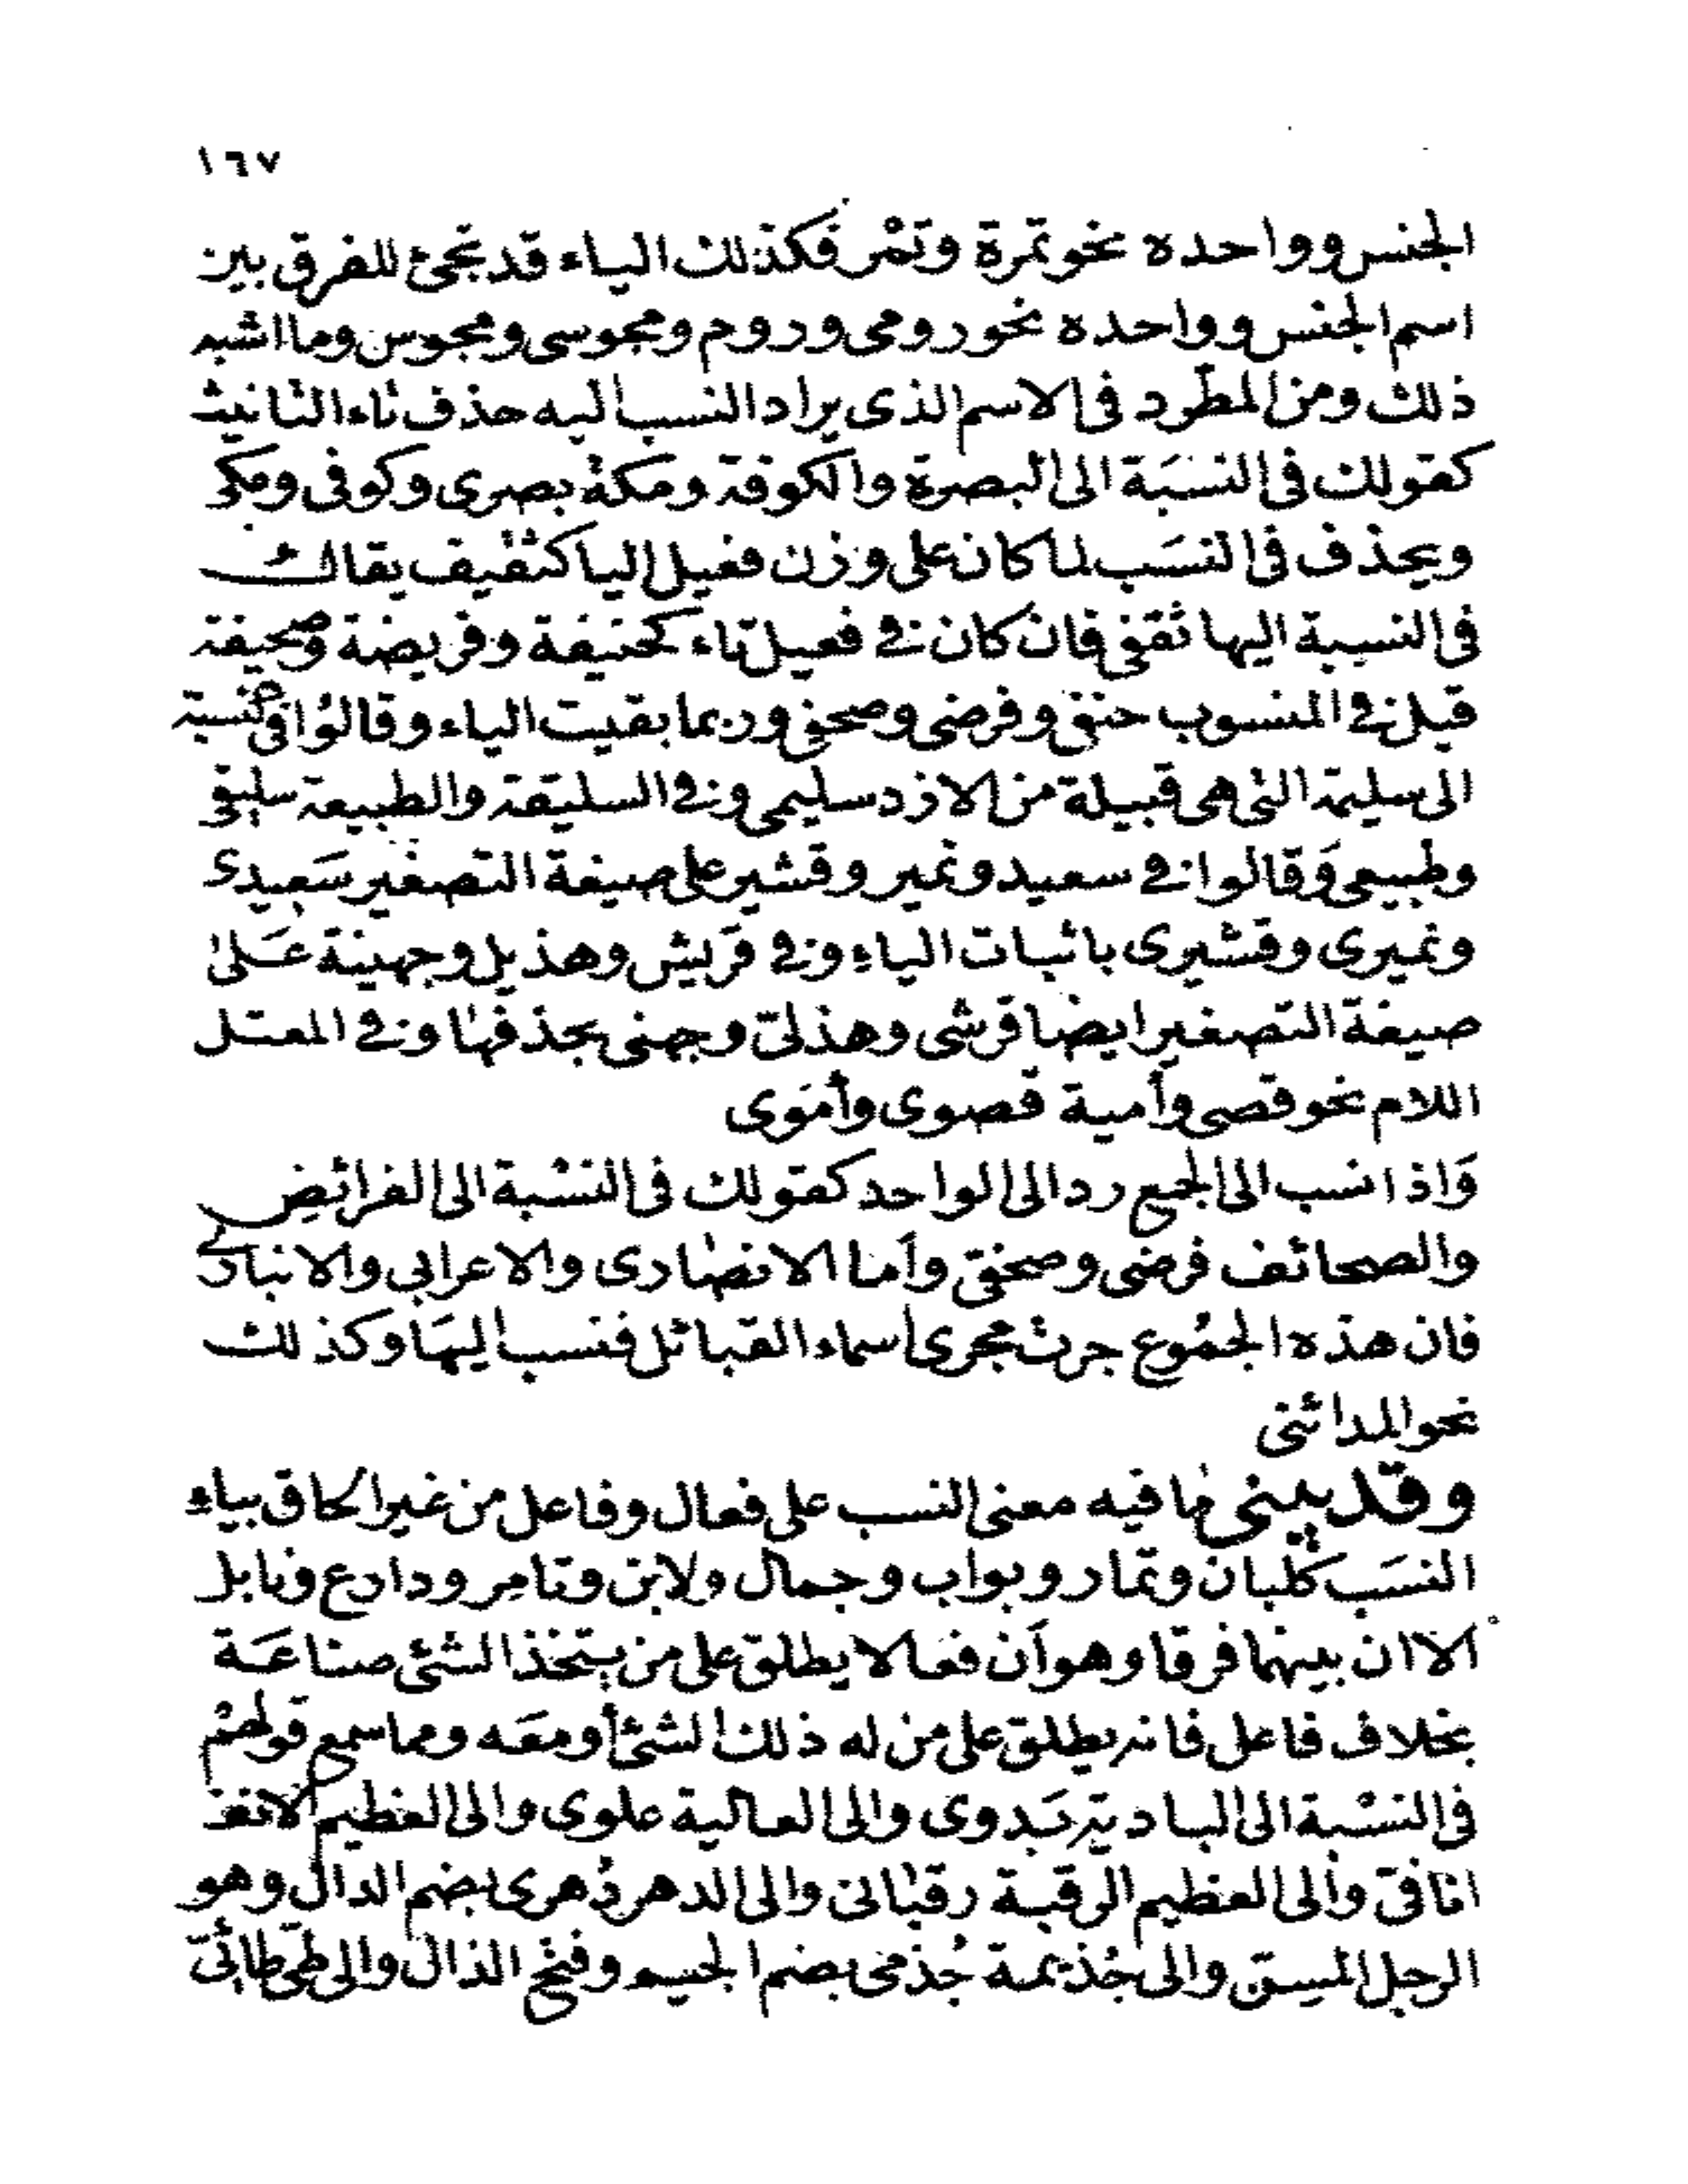 ١٦٧
الجنس وواحده نحو تمرة وتمْر فكذلك الياء قد تجئ للفرق بين
اسم الجنس وواحده نحو رومى وروم ومجوسى ومجوس وما اشبه
ذلك ومن المطّرد فى الاسم الذى يراد النسب اليه حذف تاء التانيث
كقولك فى النسَبة الى البصرة والكوفة ومكة بصرى وكوفى ومكى
ويحذف فى النسَب لما كان على وزن فعيل اليا كثقيف يقال
فى النسبة اليها ثقفى فان كان فى فعيل تاء كحنيفة وفريضة وصحيفة
قيل فى المنسوب حنفى وفرضى وصحفى وربما بقيت الياء وقالوُا فى النسبة
الى سليمة التى هى قبيلة من الازد سليمى وفى السليقة والطبيعة سليقى
وطبيعى وَقالوا فى سعيد ونمير وقشير على صيغة التصغير سَعيدى
ونميرى وقشيرى باثبات الياءِ وفى قرَيش وهذيل وجهينة عَلىٰ
صيغة التصغير ايضا قرشى وهذلىّ وجهنى بحذفها وفى المعتل
اللام نحو قصى وأمية قصوى وأمَوى
وَاذا نسب الى الجمع رد الى الواحد كقولك فى النسْبة الى الفرائضِ
والصحائف فرضى وصحفىّ وأما الانصارى والاعرابى والانبارى
فان هذه الجمُوع جرت مجرى أسماء القبائل فنسب اليهَا وكذلك
نحو المدائنى
وقد يبنى ما فيه معنى النسب على فعال وفاعل من غير الحاق بياء
النسَب كلبان وتمار وبواب وجمال ولابن وتامر ودارع ونابل
الا ان بينهما فرقا وهو أن فعالا يطلق على من يتخذ الشئ صناعَة
بخلاف فاعل فانه يطلق على من له ذلك الشئ أو معَه ومما سمع قولهمْ
فى النسْبة الى البادية بَدوى والى العالية علوى والى العظيم الانف
انافىّ والى العظيم الرقبة رقبانى والى الدهر دُهرى بضم الدال وهو
الرجل المسن والى جُذيمة جُذمى بضم الجيم وفتح الذال والى طئ طائىّ